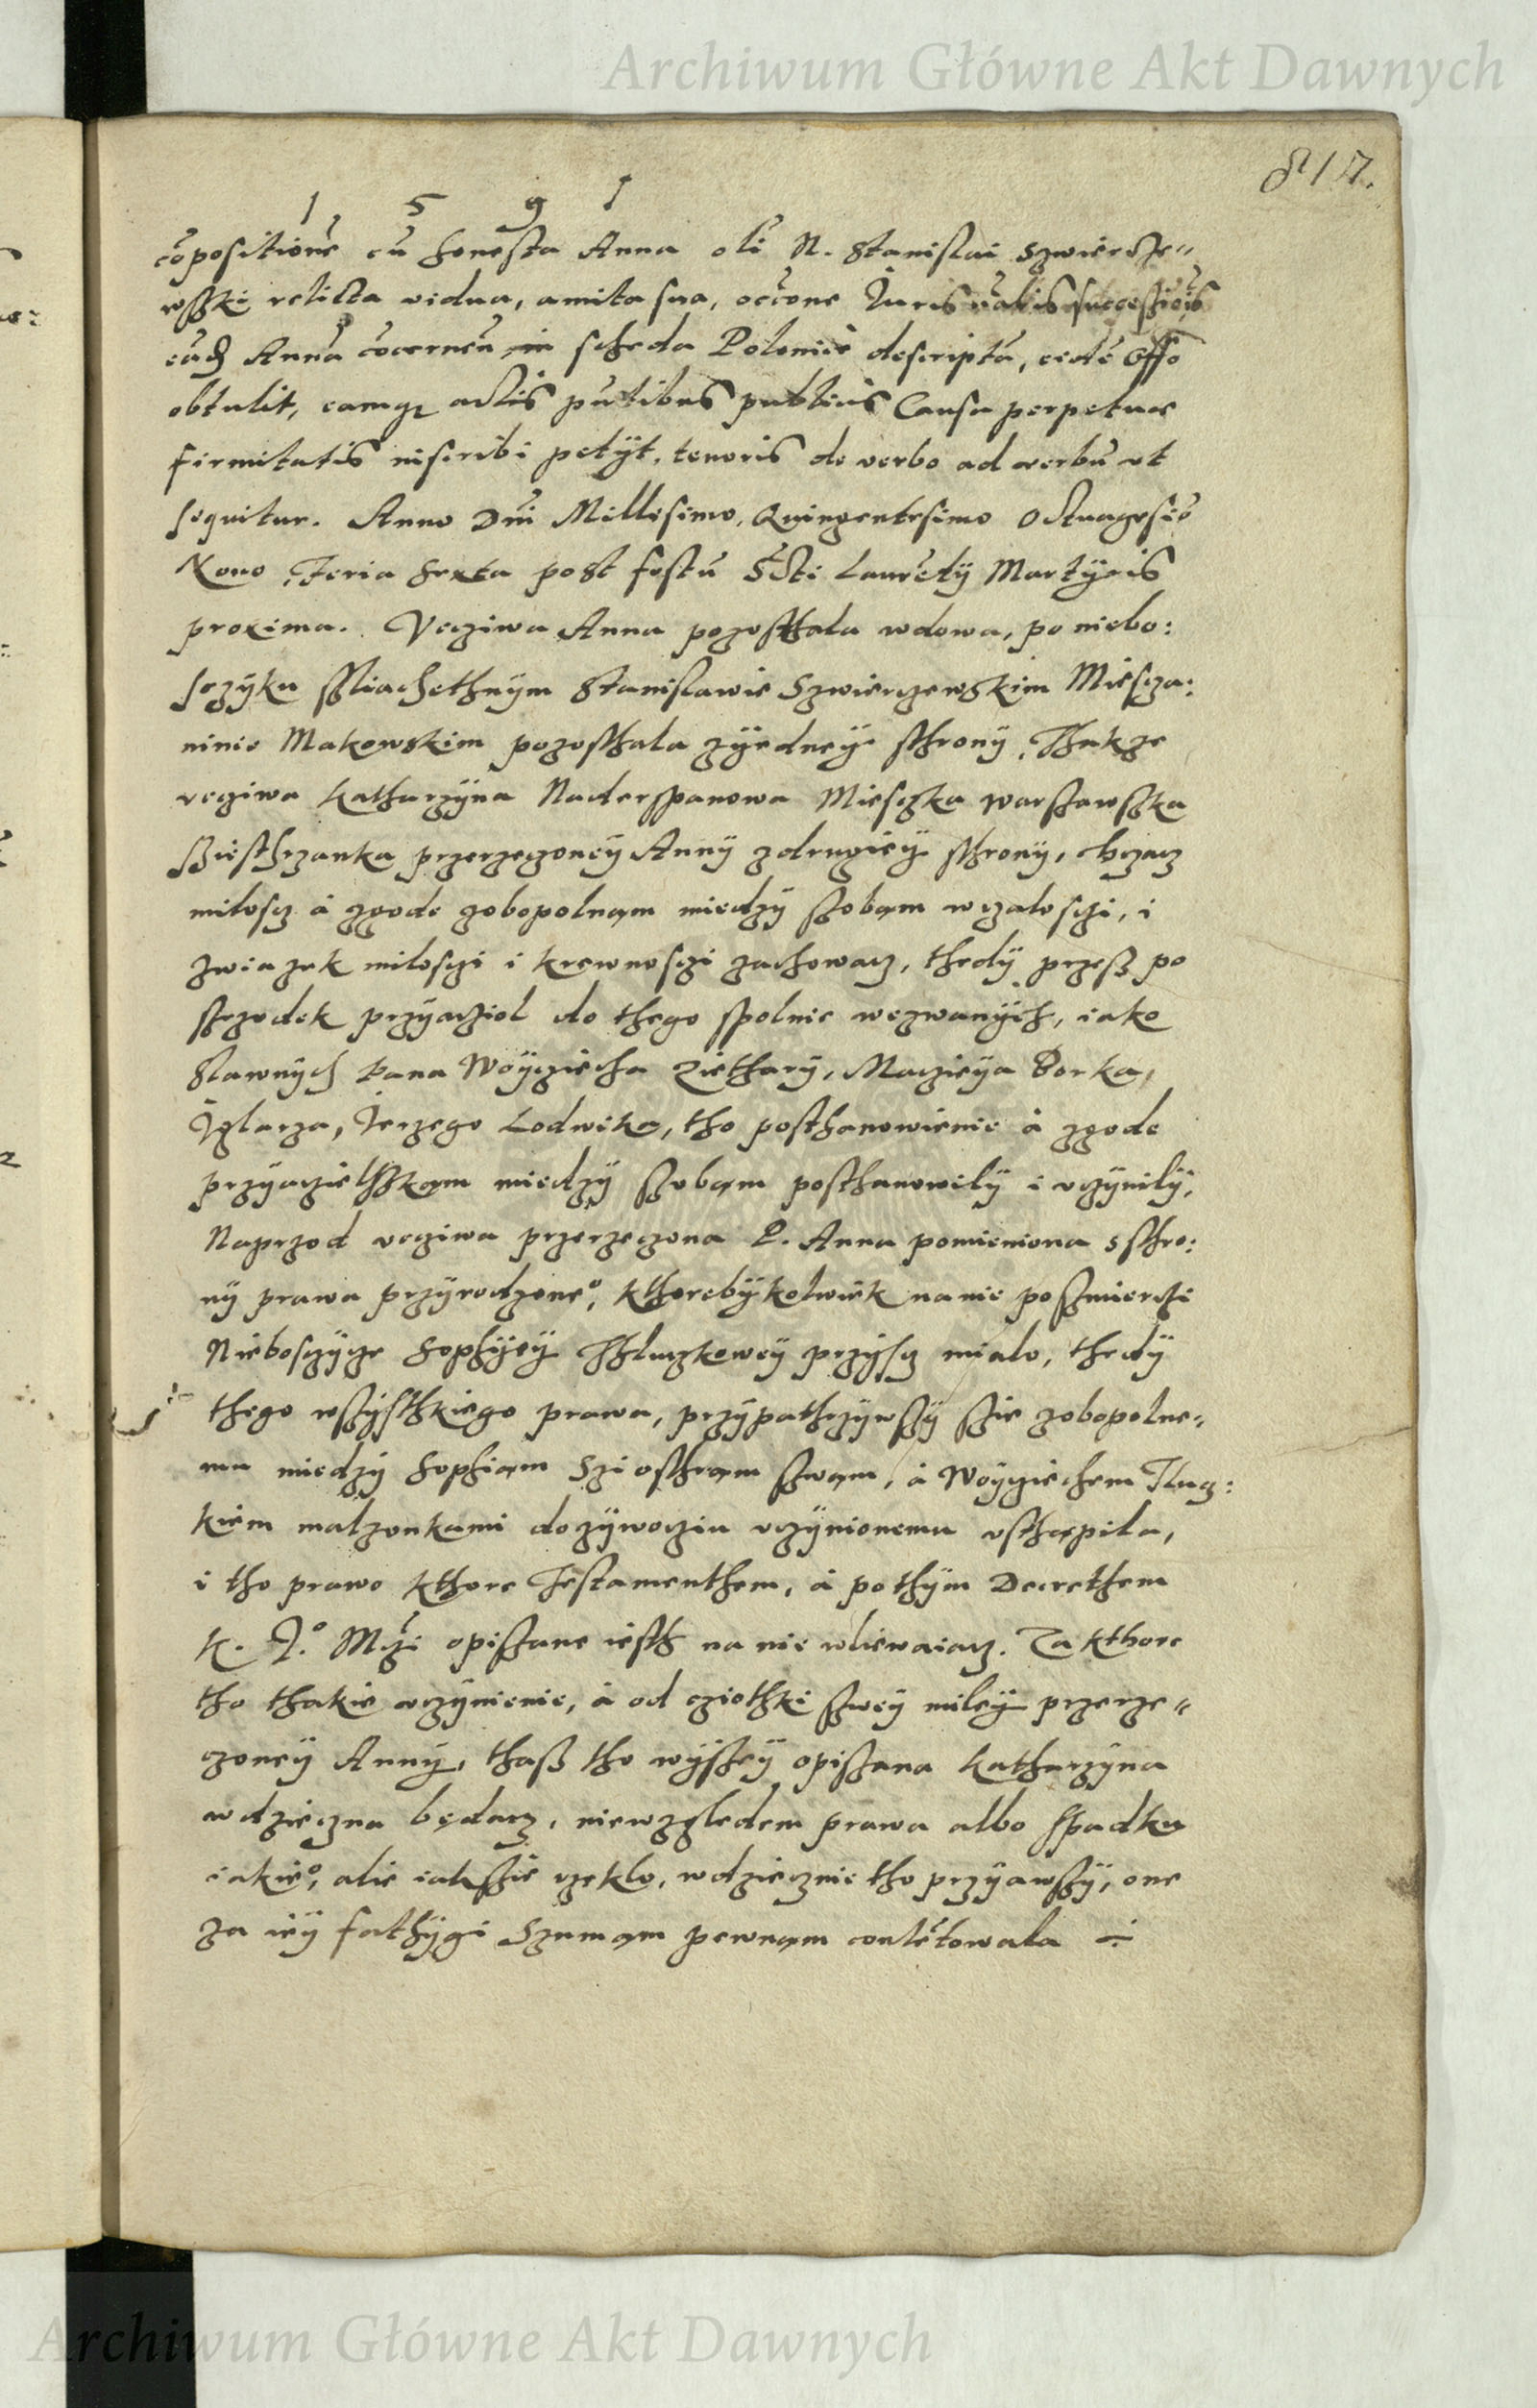 Archiwum Główne Akt Dawnych
817.
1 5 9 1
cōpositionē cū honesta Anna oli N. Stanislai Szwiercze„
wszki relicta vidua, amita sua, occōne Iuris nālis successiōis
eādē Annā cōcernēn in scheda Polonicè descriptā, eidē Offo
obtulit, eamq; actis pntibus publicis Causa perpetuae
firmitatis inscribi petÿt, tenoris de verbo ad verbū vt
sequitur. Anno Dni Millesimo, Quingentesimo Octuagesiō
Nono Feria Sexta post festū Scti Laurētÿ Martÿris
proxima. Vcziwa Anna pozosthala wdowa, po niebo:
sczÿku Szliachethnÿm Stanislawie Szwierczewskim Miescza:
ninie Makowskim pozosthala zÿednéÿ sthronÿ, Thakze
vcziwa Katharzÿna Naderspanowa Miesczka Warszawszka
Sziesthrzanka przerzeczonéÿ Annÿ zdrugiéÿ sthronÿ, chczacz
miloscz à zgode zobopolnąm miedzÿ szobąm wczalosczi, i
zwiazek milosczi i krewnosczi zachowacz, thedÿ przesz po
szrzodek przÿacziol do thego spolnie wezwanÿch, iako
Slawnÿch Pana Woÿcziecha Zietharÿ, Macziéÿa Borka,
Iglarza, Ierzego Lodwika, tho posthanowienie à zgode
przÿaczielszkąm miedzÿ szobąm posthanowilÿ i vczÿnilÿ,
Naprzod vcziwa przerzeczona P. Anna pomieniona s sthro:
nÿ prawa przÿrodzone°, kthorebÿkolwiek na nie poszmierczi
Nieboszczÿcze Sophÿéÿ Thluczkowéÿ przÿscz mialo, thedÿ
thego wszÿsthkiego prawa, przÿpathrzÿwszÿ szie zobopolne„
mu miedzÿ Sophiąm Sziosthrąm szwąm, à Woÿcziechem Tlucz:
kiem malzonkami dozÿwocziu vczÿnionemu vsthąpila,
i tho prawo kthore Testamenthem, à pothÿm Decrethem
K. J.° Mczi opiszane iesth na nie wliewaiacz. Za kthore
tho thakie vczÿnienie, à od cziothki szwéÿ miléÿ przerze„
czonéÿ Annÿ, thasz tho wÿszéÿ opiszana Katharzÿna
wdzieczna będacz, niewzgledem prawa albo spadku
iakie°, alie iakszie rzeklo, wdziecznie tho przÿawszÿ, one
za iéÿ fathÿgi Szumąm pewnąm contētowala ÷
Archiwum Główne Akt Dawnych